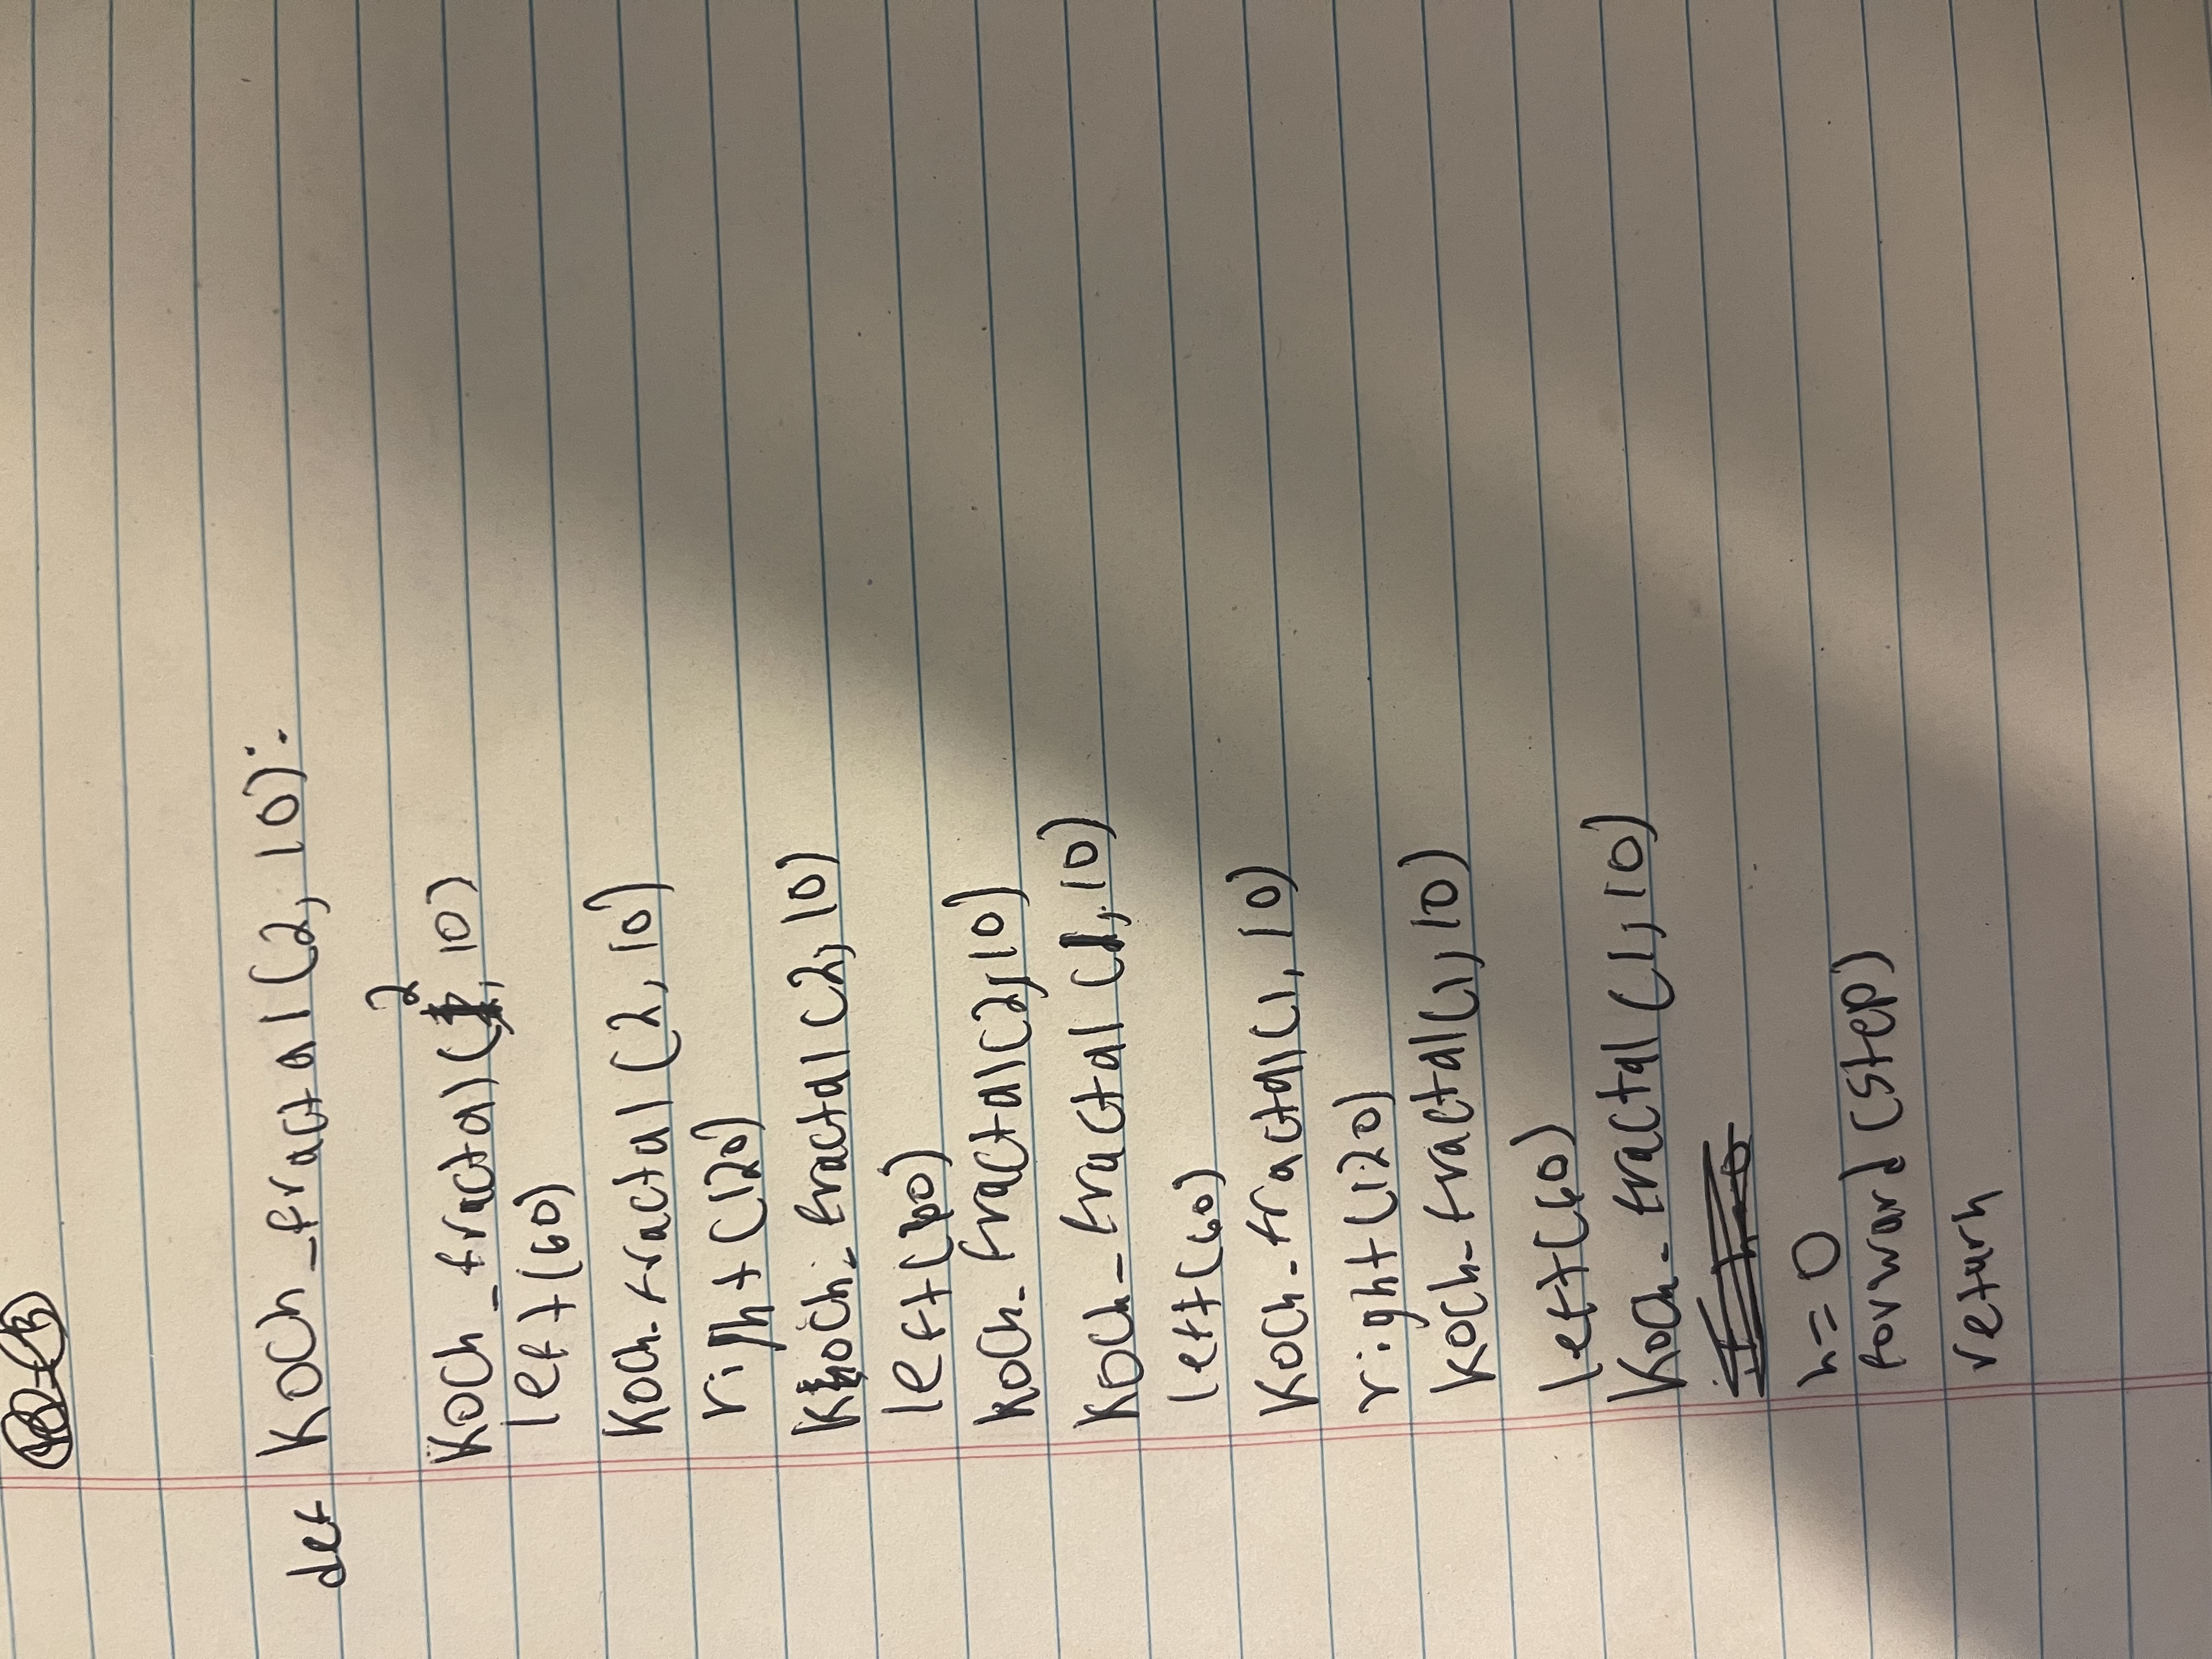 def Koch_fractal(2, 10):
2
Koch_fractal(, 10)
left(60)
Koch_fractal(2, 10)
right(120)
Koch_fractal(2, 10)
left(60)
Koch_fractal(2, 10)
Koch_fractal(1, 10)
left(60)
Koch_fractal(1, 10)
right(120)
Koch_fractal(1, 10)
left(60)
Koch_fractal(1, 10)
n = 0
forward(step)
return